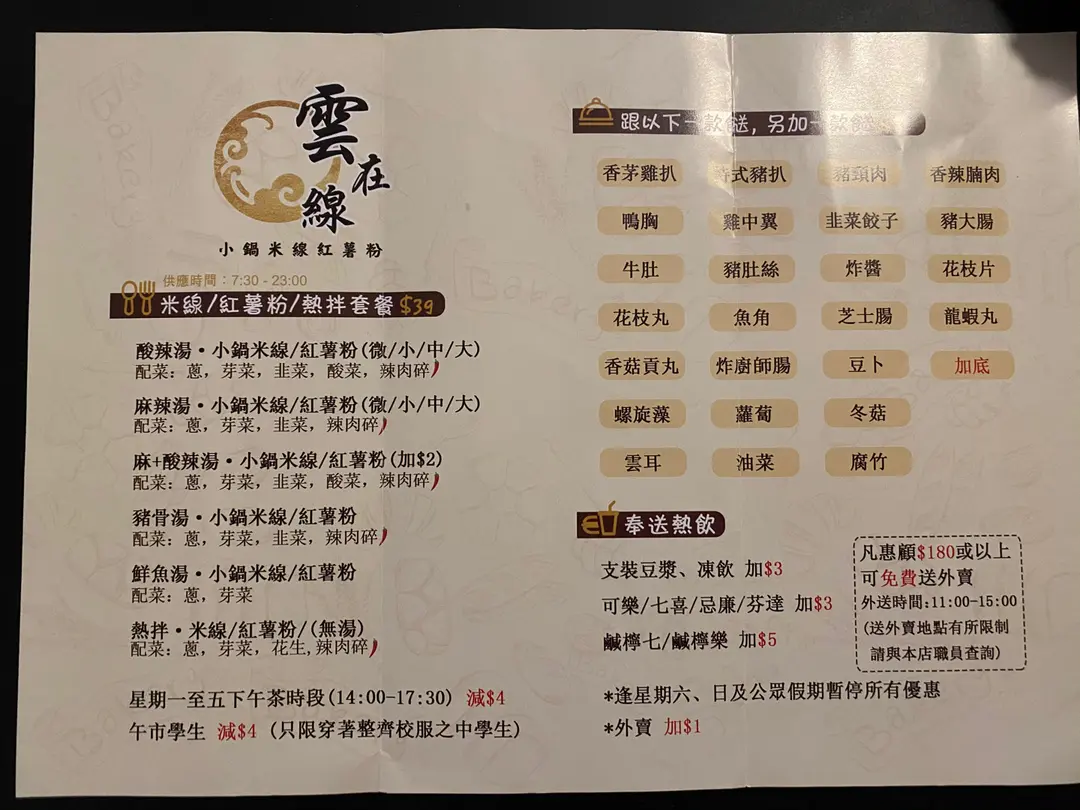 雲在線
小鍋米線紅薯粉
供應時間：7:30 - 23:00
米線/紅薯粉/熱拌套餐 $39
酸辣湯・小鍋米線/紅薯粉(微/小/中/大)
配菜：蔥，芽菜，韭菜，酸菜，辣肉碎
麻辣湯・小鍋米線/紅薯粉(微/小/中/大)
配菜：蔥，芽菜，韭菜，辣肉碎
麻+酸辣湯・小鍋米線/紅薯粉(加$2)
配菜：蔥，芽菜，韭菜，酸菜，辣肉碎
豬骨湯・小鍋米線/紅薯粉
配菜：蔥，芽菜，韭菜，辣肉碎
鮮魚湯・小鍋米線/紅薯粉
配菜：蔥，芽菜
熱拌・米線/紅薯粉/(無湯)
配菜：蔥，芽菜，花生,辣肉碎
星期一至五下午茶時段(14:00-17:30) 減$4
午市學生 減$4 (只限穿著整齊校服之中學生)
跟以下一款餸，另加一款餸
香茅雞扒 式豬扒 豬頸肉 香辣腩肉
鴨胸 雞中翼 韭菜餃子 豬大腸
牛肚 豬肚絲 炸醬 花枝片
花枝丸 魚角 芝士腸 龍蝦丸
香菇貢丸 炸廚師腸 豆卜 加底
螺旋藻 蘿蔔 冬菇
雲耳 油菜 腐竹
奉送熱飲
支裝豆漿、凍飲 加$3
可樂/七喜/忌廉/芬達 加$3
鹹檸七/鹹檸樂 加$5
凡惠顧$180或以上
可免費送外賣
外送時間:11:00-15:00
(送外賣地點有所限制
請與本店職員查詢)
*逢星期六、日及公眾假期暫停所有優惠
*外賣 加$1